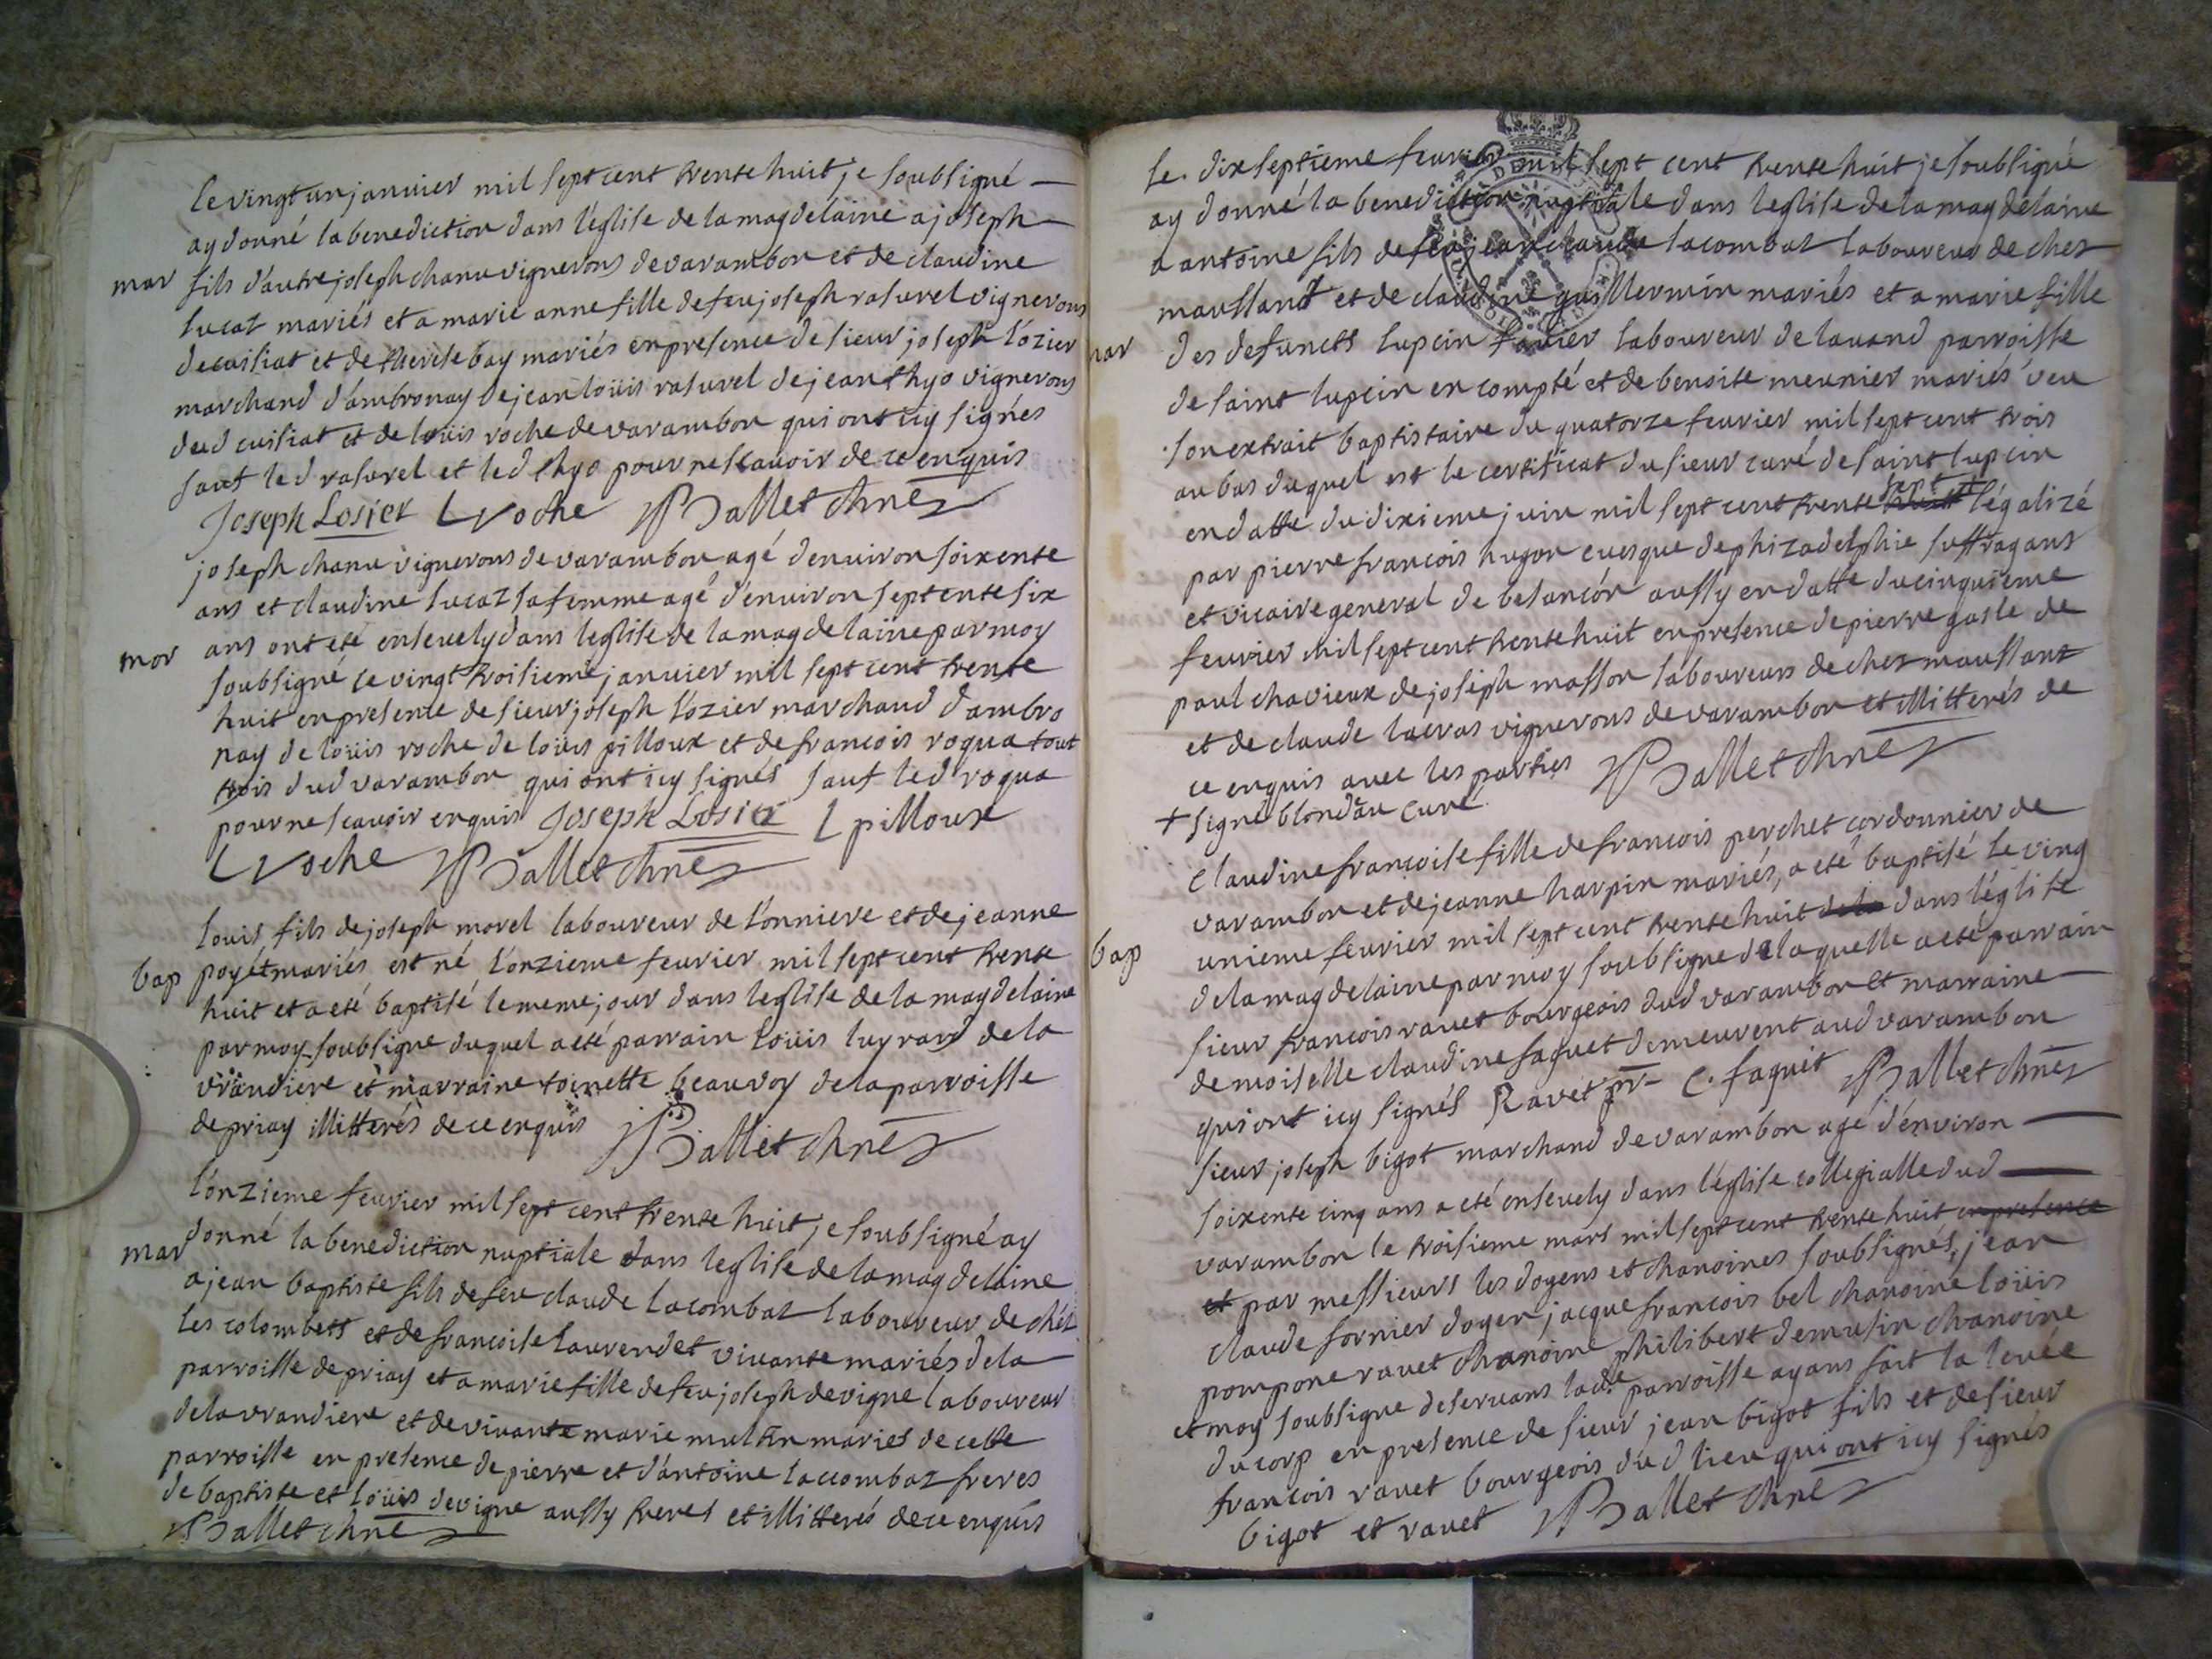 le vingt un janvier mil sept cent trente huit je soubsigné
ay donné la benediction dans l'église de la magdelaine a joseph
mar fils d'autre joseph chanu vignerons de varambon et de claudine
lucaz mariés et a marie anne fille de feu joseph rasurel vignerons
de cuisiat et de therese bay mariés en presence de sieur joseph lozier
marchand d'ambronay de jean loüis rasurel de jean thyo vignerons
dud cuisiat et de loüis roche de varambon qui ont icy signés
sauf led rasurel et led thyo pour ne scavoir de ce enquis
Joseph Losier L roche Ballet chne
joseph chanu vignerons de varambon agé d'environ soixente
ans et claudine lucaz sa femme agé d'environ septente six
mor ans ont eté ensevely dans leglise de la magdelaine par moy
soubsigné ce vingt troisieme janvier mil sept cent trente
huit en presence de sieur joseph lozier marchand d'ambro
nay de loüis roche de loüis pilloux et de francois roqua tout
trois dud varambon qui ont icy signés sauf led roqua
pour ne scavoir enquis Joseph Losier L pilloux
L roche Ballet chne
louis fils de joseph morel laboureur de l'onniere et de jeanne
bap poyét mariés est né l'onzieme fevrier mil sept cent trente
huit et a eté baptisé le meme jour dans leglise de la magdelaine
par moy soubsigne duquel a eté parrain loüis luyrard de la
vrandiere et marraine toinette beauvoy de la parroisse
de priay illitterés de ce enquis Ballet chne
l'onzieme fevrier mil sept cent trente huit je soubsigné ay
mar donné la benediction nuptiale dans leglise de la magdelaine
a jean baptiste fils de feu claude lacombaz laboureur de chéz
les colombets et de francoise laurendet vivante mariés de la
parroisse de priay et a marie fille de feu joseph devigne laboureur
de la vrandiere et de vivante marie multin mariés de cette
parroisse en presence de pierre et d'antoine laccombaz freres
de baptiste et loüis devigne aussy freres et illitterés de ce enquis
Ballet chne
le dixseptieme fevrier mil sept cent trente huit je soubsigné
ay donné la benediction nuptiale dans leglise de la magdelaine
a antoine fils de feu jean claude lacombaz laboureur de chez
maussant et de claudine guillermin mariés et a marie fille
mar des defuncts lupcin favier laboureur de lavand parroisse
de saint lupcin en compté et de benoite meunier mariés veu
son extrait baptistaire du quatorze fevrier mil sept cent trois
au bas duquel est le certificat du sieur curé de saint lupcin
en datte du dixieme juin mil sept cent trente sept + légalizé
par pierre francois hugon evesque de phizadelphie suffragans
et vicaire general de besancón aussy en datte du cinquieme
fevrier mil sept cent trente huit en presence de pierre gasle de
paul chavieux de joseph masson laboureurs de chez maussant
et de claude lacras vignerons de varambon et illitterés de
ce enquis avec les parties Ballet chne
+ signé blondau curé
claudine francoise fille de francois perchet cordonnier de
varambon et de jeanne harpin mariés, a eté baptisé le ving
unieme fevrier mil sept cent trente huit dans l'église
bap de la magdelaine par moy soubsigne de laquelle a eté parrain
sieur francois ravet bourgeois dud varambon et marraine
demoiselle claudine faguet demeurent aud varambon
qui ont icy signés Ravet pr C. faguet Ballet chne
sieur joseph bigot marchand de varambon agé d'énviron
soixente cinq ans a eté ensevely dans l'église collegialle dud
varambon le troisieme mars mil sept cent trente huit en presence
et par messieurs les doyens et chanoines soubsignés, jean
claude fornier doyen jacque francois bel chanoine loüis
pompone ravet chanoine philibert demusin chanoine
et moy soubsigne deservans lade parroisse ayans fait la levée
du corp en presence de sieur jean bigot fils et de sieur
francois ravet bourgeois dud lieu qui ont icy signés
bigot et ravet Ballet chne